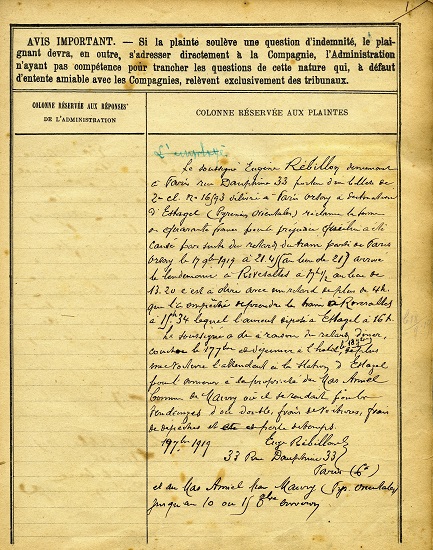 1
AVIS IMPORTANT. — Si la plainte soulève une question d'indemnité, le plai-
gnant devra, en outre, s'adresser directement à la Compagnie, l'Administration
n'ayant pas compétence pour trancher les questions de cette nature qui, à défaut
d'entente amiable avec les Compagnies, relèvent exclusivement des tribunaux.
COLONNE RÉSERVÉE AUX RÉPONSES
DE L'ADMINISTRATION
COLONNE RÉSERVÉE AUX PLAINTES
Le soussigné Eugène Rébillon demeurant
à Paris rue Dauphine 33 porteur d'un billet de
2e cl. no 16193 délivré à Paris orsay à destination
d'Estagel (Pyrénées orientales) réclame la somme
de quarante francs pour préjudice qui lui a été
causé par suite du retard du train parti de Paris
orsay le 17 9bre 1919 à 21.45 (au lieu de 21) arrivé
le lendemain à Rivesaltes à 17h 1/2 au lieu de
13.20 c'est à dire avec un retard de plus de 4h
qui l'a empêché de prendre le train à Rivesaltes
à 15h34 lequel l'aurait déposé à Estagel à 16h
Le soussigné a dû à raison du retard, dîner,
coucher le 17 7bre et déjeuner à l'hôtel, de plus
une voiture l'attendait à la station d'Estagel
pour l'amener à la propriété du Mas Amiel
Commune de Maury où il se rendait pour les
vendanges d'où double frais de voitures, frais
de dépêches et perte de temps.
19 7bre 1919
Eug Rébillon
33 Rue Dauphine 33
Paris (6e)
et au Mas Amiel par Maury (Pyr. orientales)
jusqu'au 10 ou 15 8bre environ